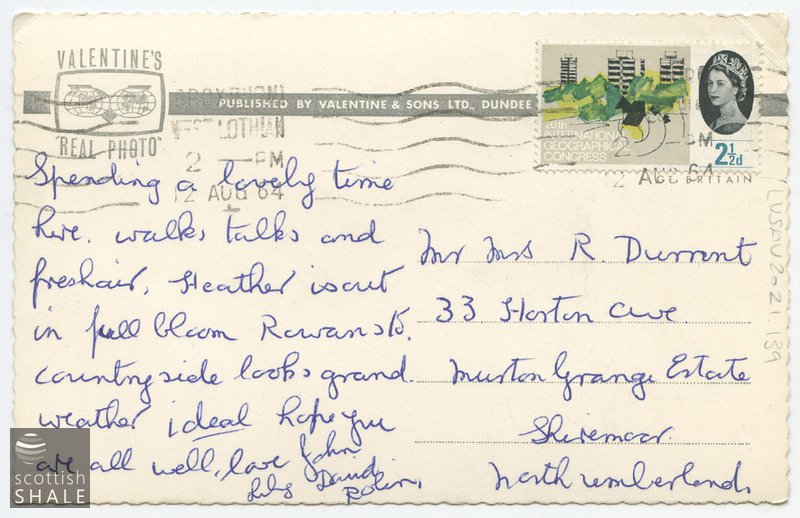 VALENTINE'S
"REAL PHOTO"
PUBLISHED BY VALENTINE & SONS LTD., DUNDEE
WEST LOTHIAN
2 — PM
12 AUG 64
20th
INTERNATIONAL
GEOGRAPHICAL
CONGRESS
2½d
2 — PM
2 AUG 64
GT. BRITAIN
LVSAV2021.139
Spending a lovely time
here. walks talks and
freshair, Heather is out
in full bloom Rowans to.
countryside looks grand.
weather ideal hope you
are all well, love John
Lily David
Robin.
Mr Mrs R. Durrant
33 Horton Ave.
Murton Grange Estate
Shiremoor.
Northumberland.
scottish
SHALE